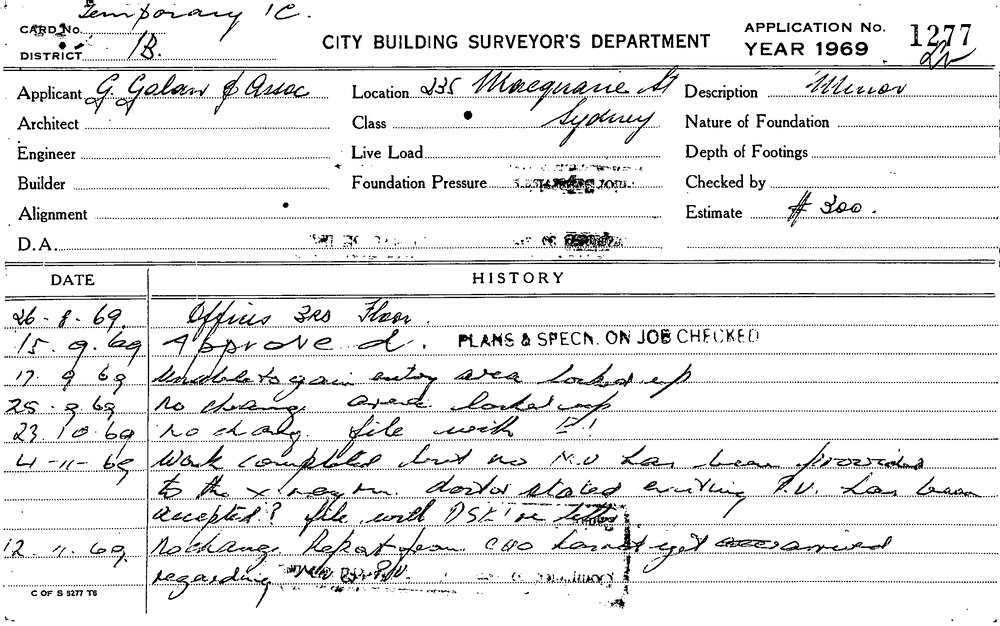 Temporary 1C.
CARD No.
DISTRICT 1B.
CITY BUILDING SURVEYOR'S DEPARTMENT
APPLICATION No. 1277
YEAR 1969
Applicant G. Galaw & Assoc Location 235 Macquarie St Description Minor
Architect Class Sydney Nature of Foundation
Engineer Live Load Depth of Footings
Builder Foundation Pressure Checked by
Alignment Estimate $ 300.
D.A.
DATE HISTORY
26-8-69. Offices 3RD Floor.
15.9.69 Approved. PLANS & SPECN. ON JOB CHECKED
17 9 69 Unable to gain entry area locked up
25.9.69 No change area locked up
23.10.69 No change file with
4-11-69 Work completed but no N.V has been provided
to the x-ray rm. doctor stated existing P.V. has been
accepted? file with DSI re letter
12.11.69 No change Report from CHO has not yet arrived
regarding
C OF S 5277 T6